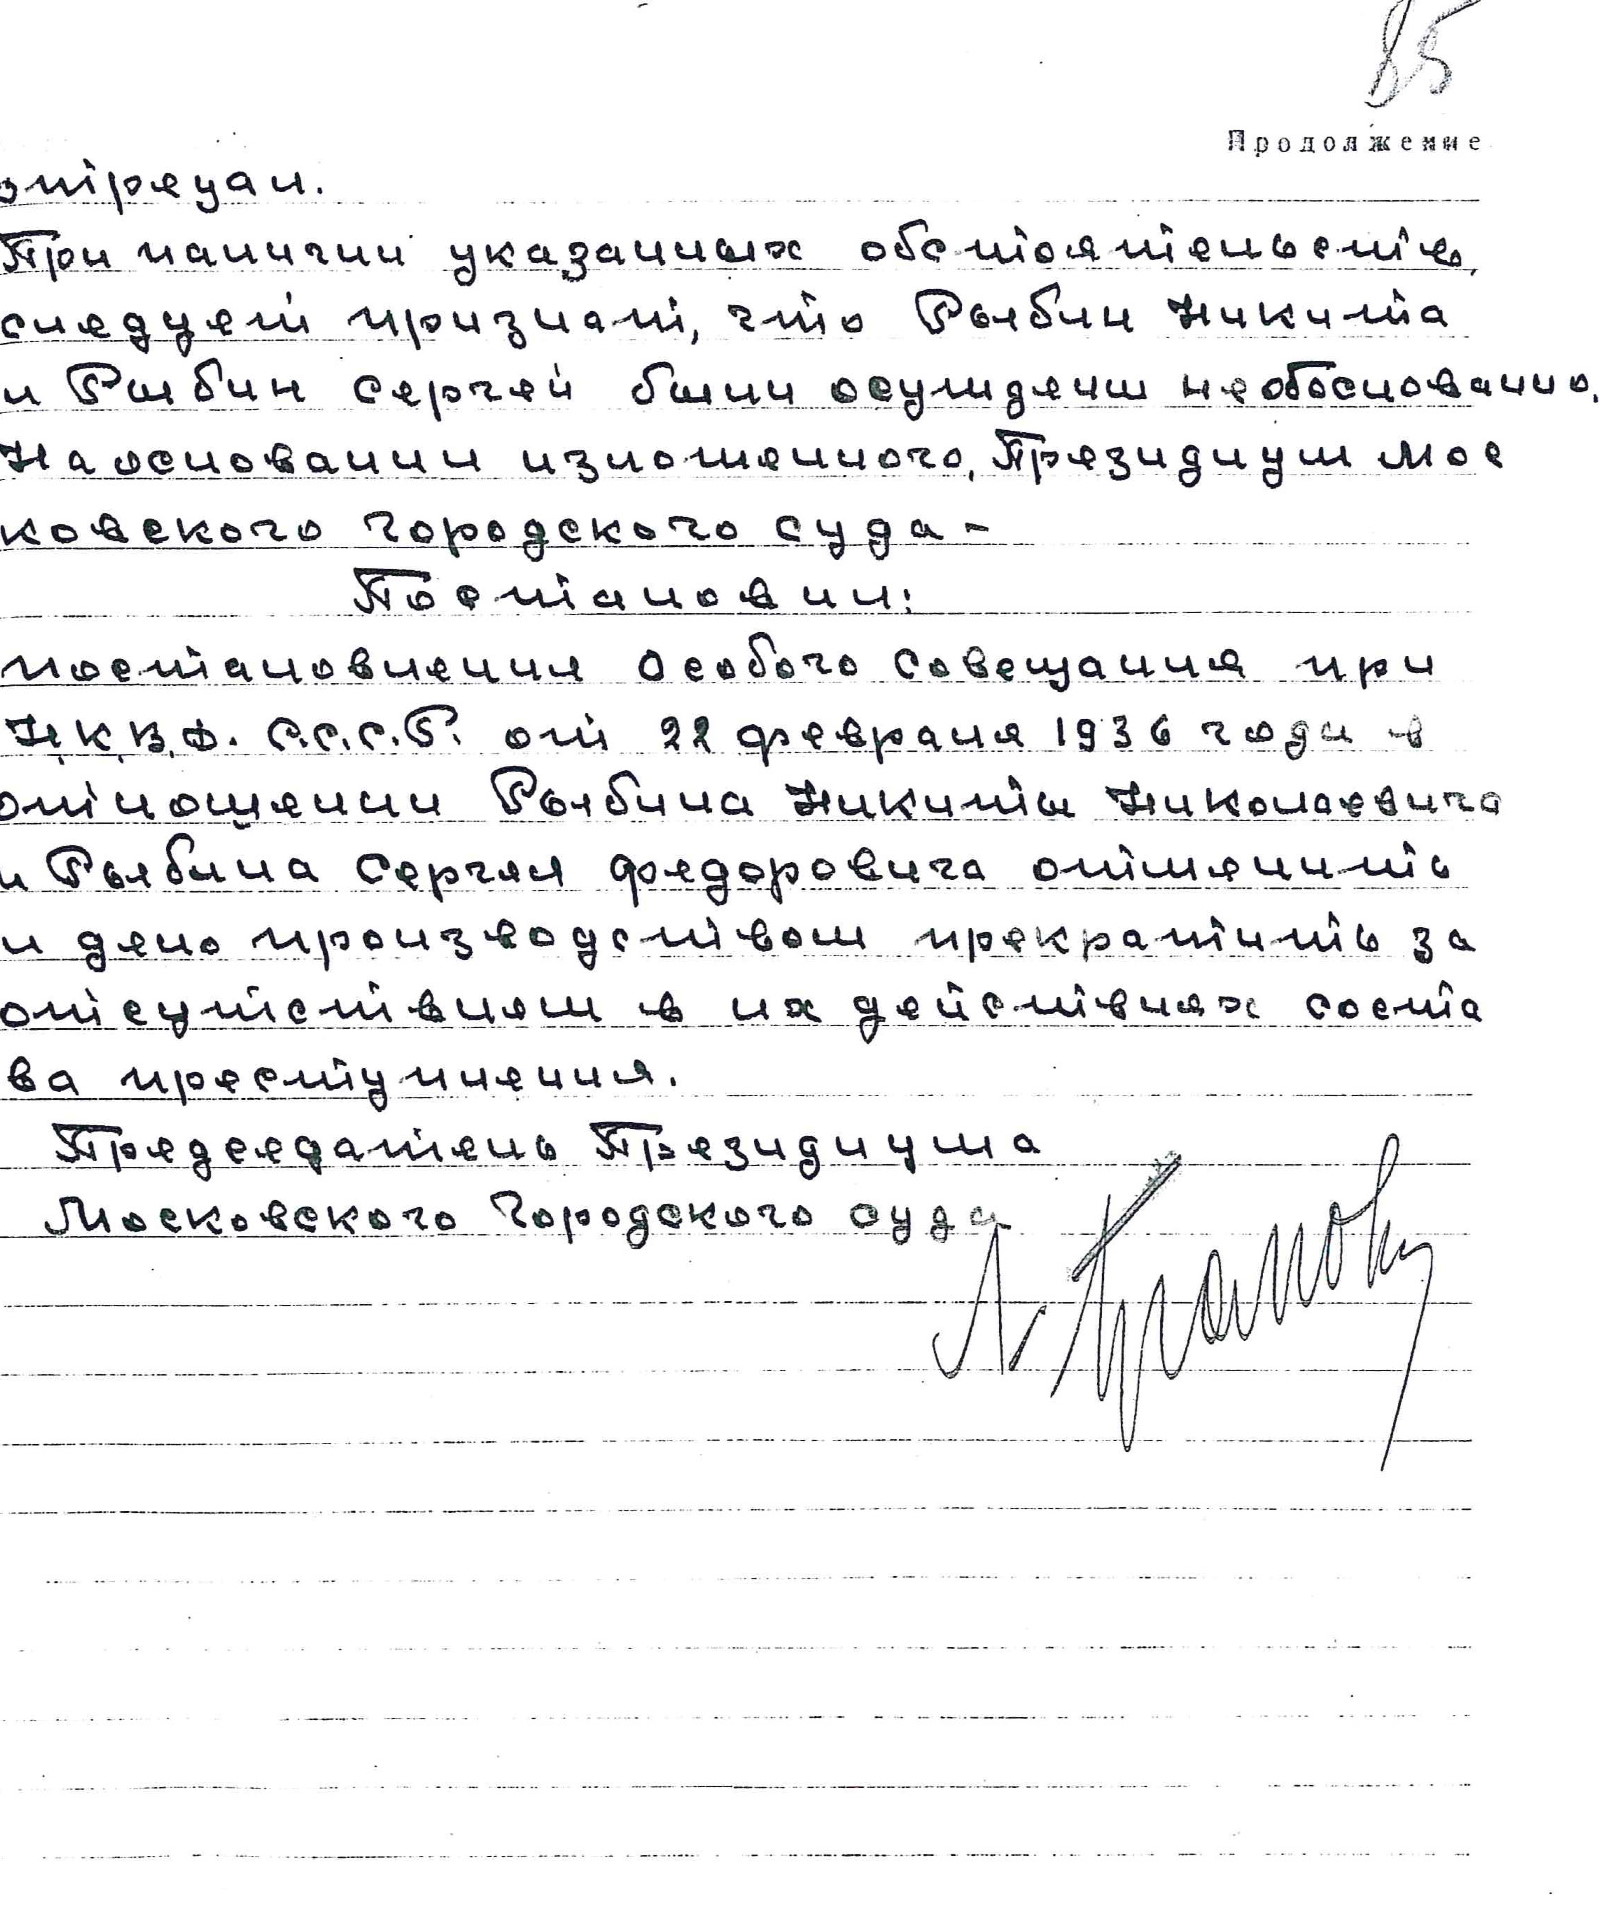 85
Продолжение
отрицал.
При наличии указанных обстоятельств,
следует признат, что Рыбин Никита
и Рыбин Сергей были осуждены необосновано.
На основании изложенного, Президиум Мос
ковского Городского суда-
Постановил:
постановления Особого Совещания при
Н.К.В.Д. С.С.С.Р. от 22 февраля 1936 года в
отношении Рыбина Никиты Николаевича
и Рыбина Сергея Федоровича отменить
и дело производством прекратить за
отсутствием в их действиях соста
ва преступления.
Председатель Президиума
Московского Городского суда
Л. Громов